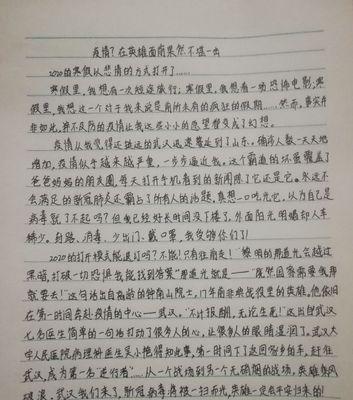 疫情?在英雄面前果然不堪一击
2020的寒假以悲情的方式打开了……
寒假里,我想有一次短途旅行;寒假里,我想看一场恐怖电影;寒
假里,我想过一个对于我来说是前所未有的疯狂的假期……然而,事实并
非如此,猝不及防的疫情让我这些小小的愿望都变成了幻想。
疫情从我觉得还挺远的武汉迅速蔓延到了山东。确诊人数一天天地
增加,疫情似乎越来越严重,一步步逼近我。这个霸道的坏蛋覆盖了
爸爸妈妈的朋友圈,每天打开手机看到的新闻除了它还是它。永远不
会满足的新冠肺炎还霸占了所有人的话题,真想一口吃光它,以为自己是
病毒就了不起吗?但我已经好长时间没下楼了,外面阳光明媚却人车
稀少。封路、消毒、少出门、戴口罩,我受够你们了!
2020的打开模式能重订吗?不能!只有往前走!“黎明的那道光会越过
黑暗,打破一切恐惧我能找到答案”那道光就是——“既然国家需要我那
就要去!”这句话出自高龄的钟南山院士,17年前非典战役里的英雄,他依旧
在第一时间奔赴疫情的中心——武汉。“不计报酬,无论生死!”这出自武汉
七名医生简单的一句话打动了很多人的心,让很多人的眼睛湿润了。武汉大
学人民医院病理科医生吴小艳得知此事,第一时间下了返回家乡的车,赶往
武汉,成为第一名“逆行者”……从一个战场到另一个无硝烟的战场,英雄乘风
破浪,武汉我们来了,新冠病毒将被一扫而光,英雄一定会平安归来的!